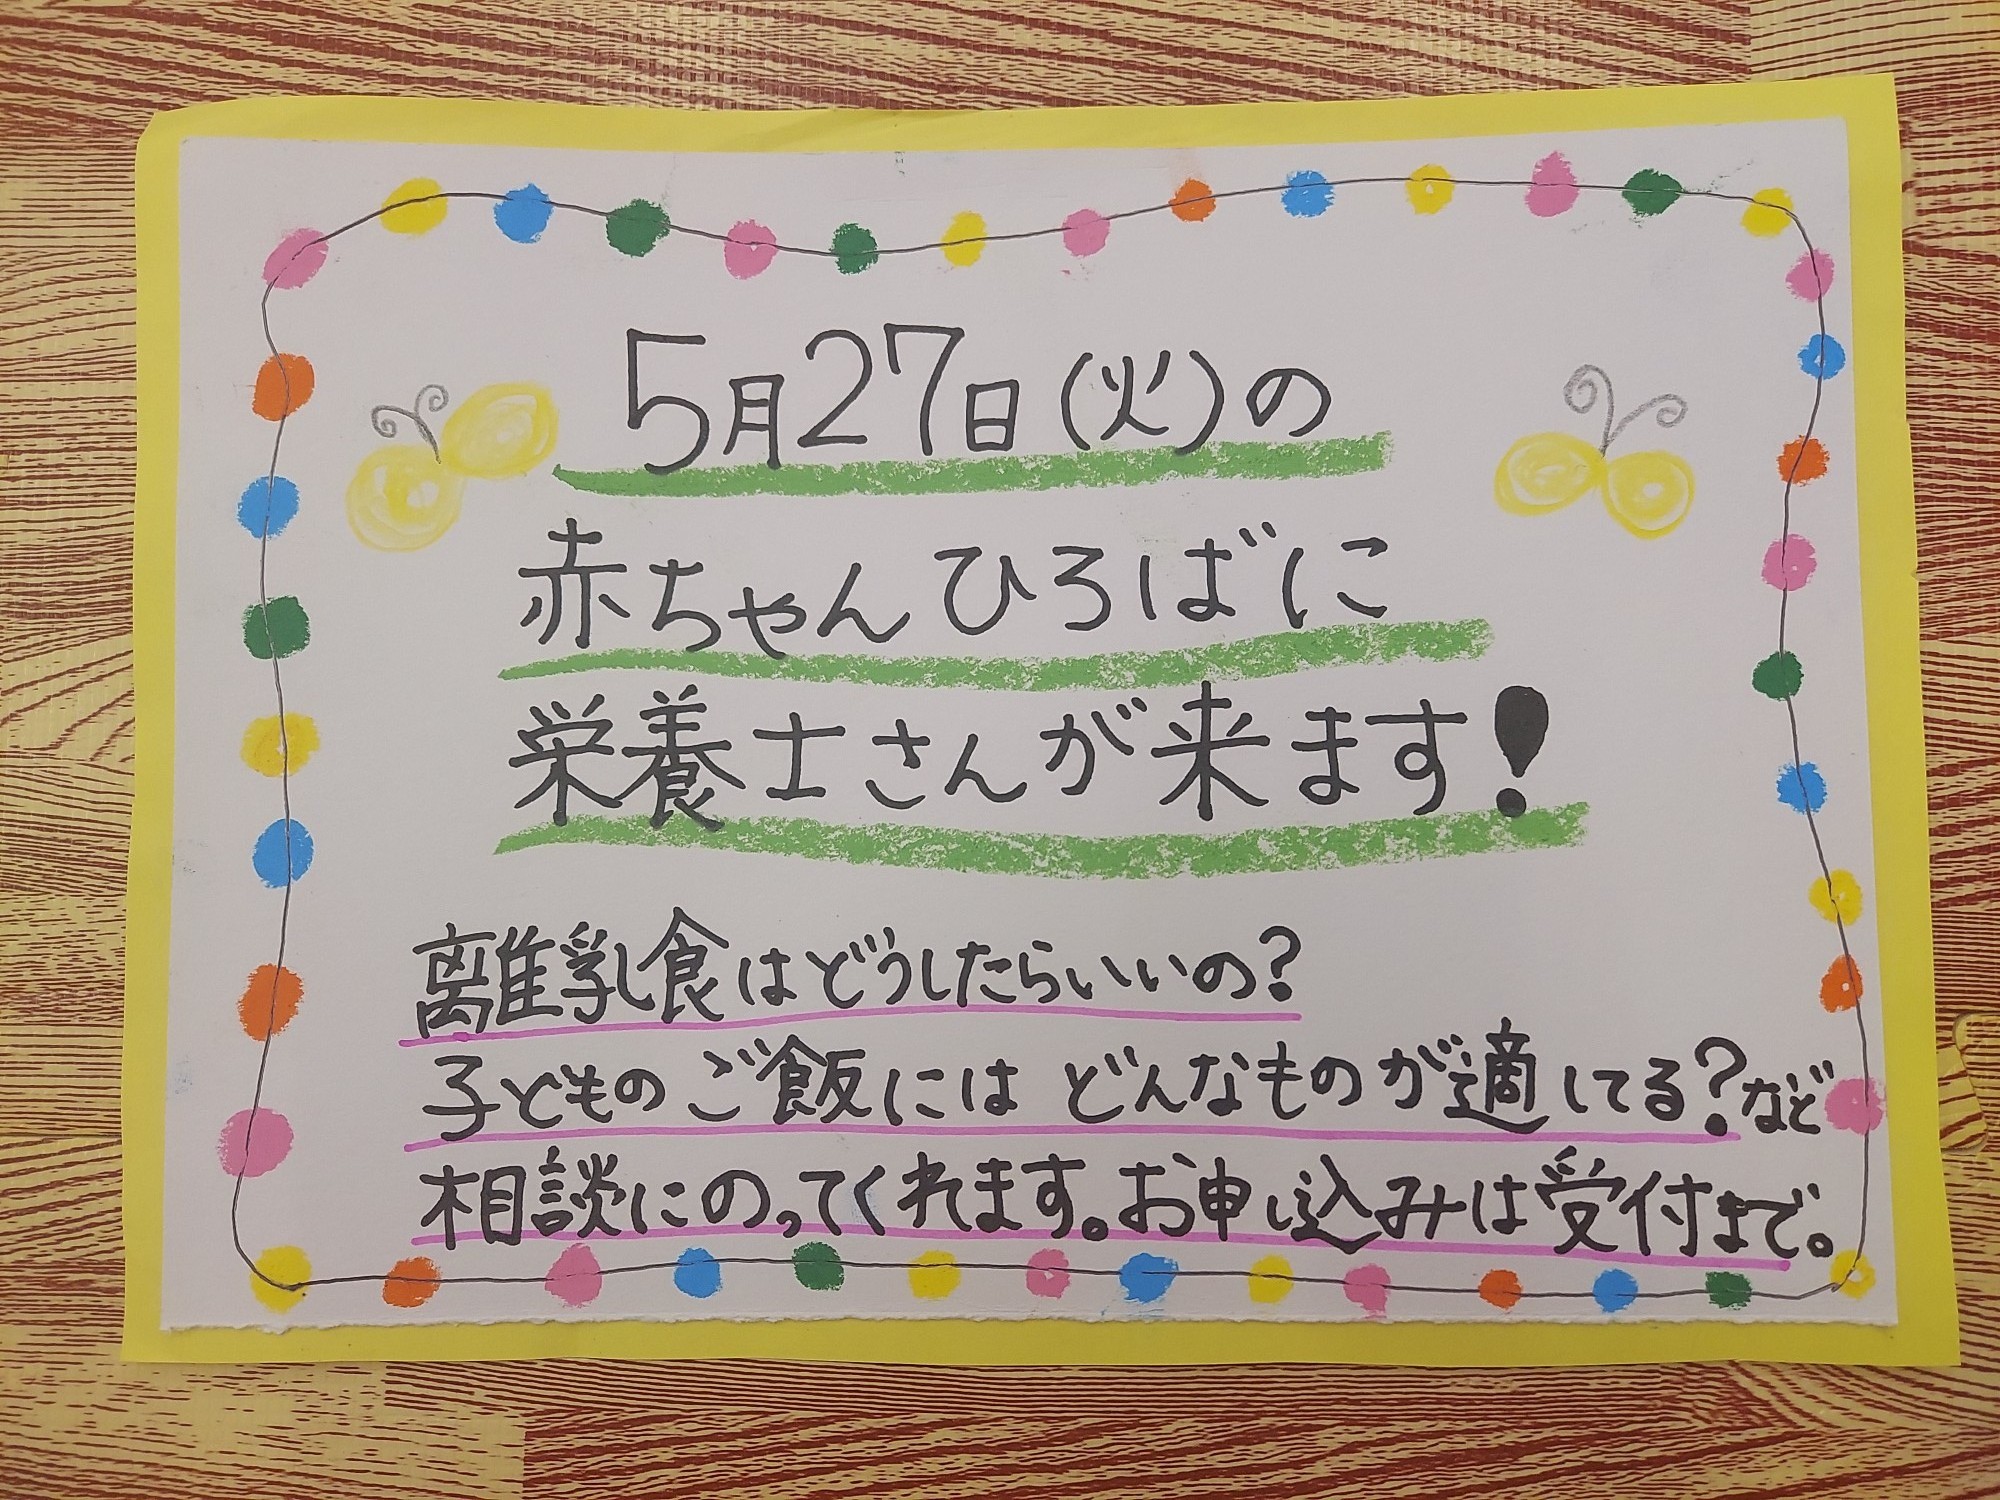 5月27日(火)の
赤ちゃんひろばに
栄養士さんが来ます!
離乳食はどうしたらいいの?
子どものご飯にはどんなものが適してる?など
相談にのってくれます。お申し込みは受付まで。